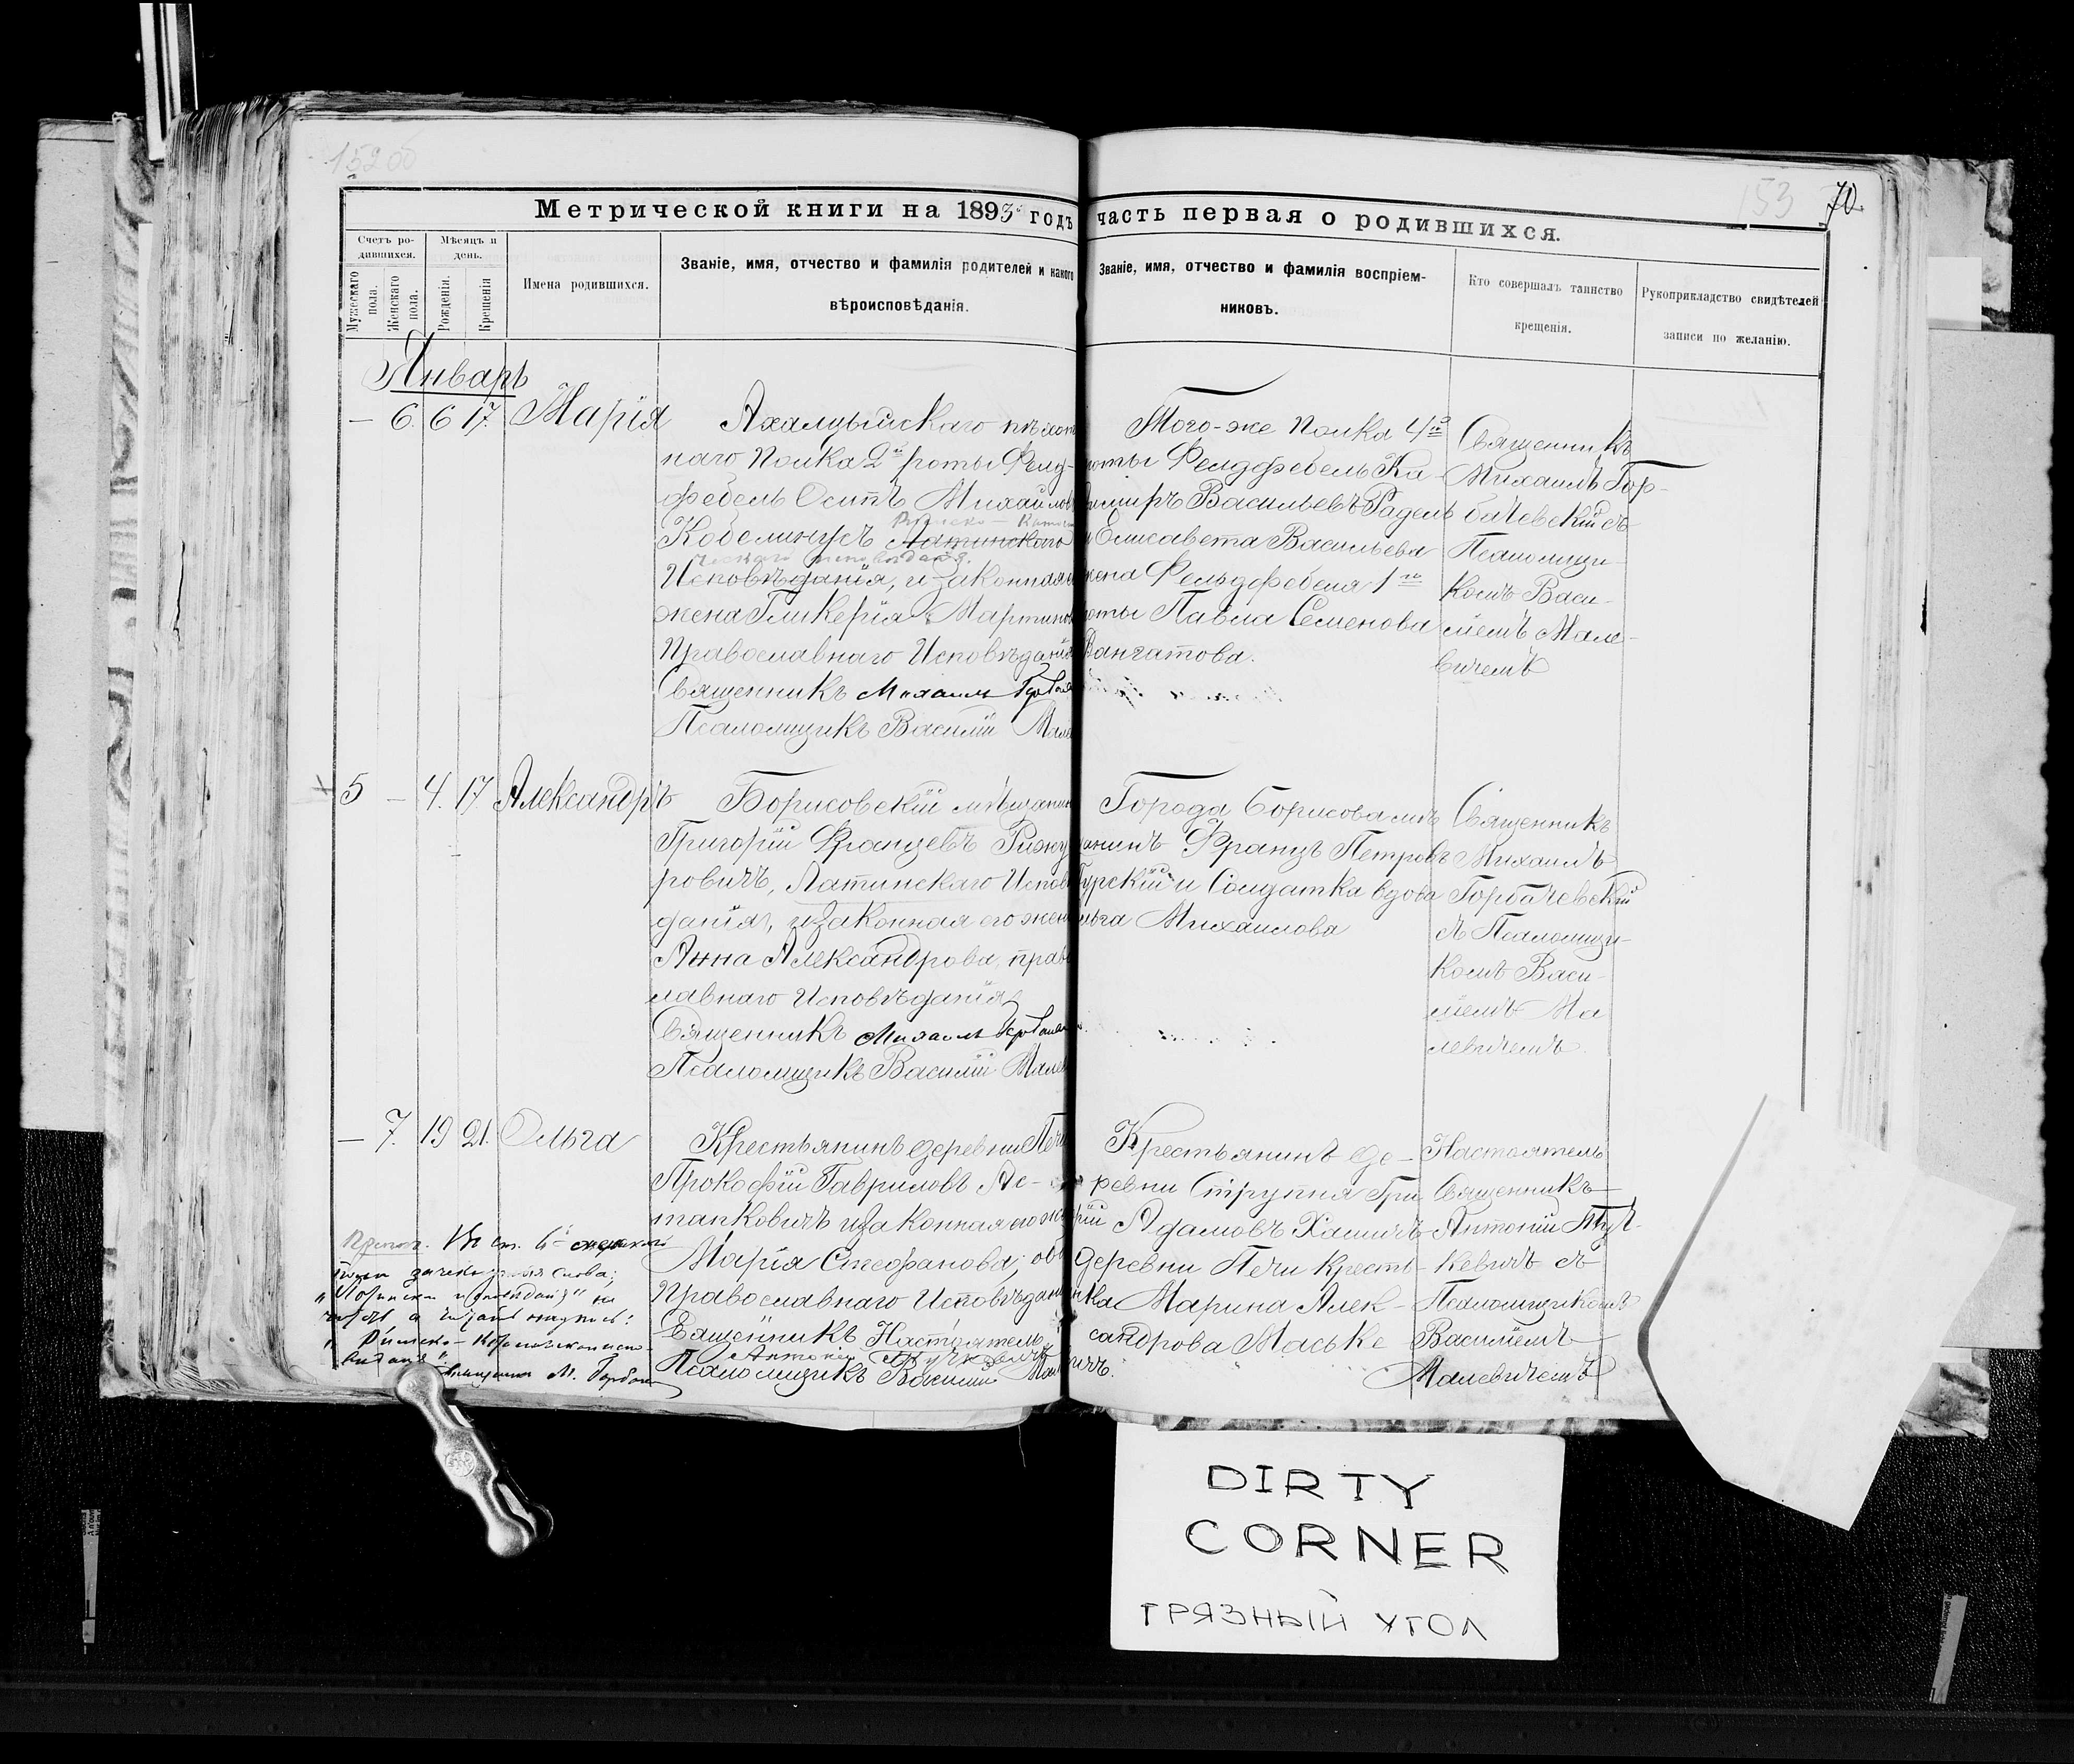 152 об
153
70.
Метрической книги на 1893 годъ
часть первая о родившихся.
Счетъ ро-
дившихся.
Мужескаго
пола.
Женскаго
пола.
Мѣсяцъ и
день.
Рожденія.
Крещенія
Имена родившихся.
Званіе, имя, отчество и фамилія родителей и какого
вѣроисповѣданія.
Званіе, имя, отчество и фамилія воспріем-
никовъ.
Кто совершалъ таинство
крещенія.
Рукоприкладство свидѣтелей
записи по желанію.
Январь
— 6. 6 17. Марія
Ахалцыйскаго пѣхот
наго Полка 2й роты Фелд-
фебель Осипъ Михайлов
Римско-
Кобелинусъ Латинскаго
Исповѣданія, и законная
жена Гликерія Мартинов
Православнаго Исповѣданія
Священникъ Михаилъ
Псаломщикъ Василій Мале
Того-же Полка 4й
роты Фелдфебель Ка-
Васильевъ Радель
и Елисавета Васильева
жена Фельдфебеля 1й
роты Павла Семенова
Вангатова.
Священникъ
Михаилъ Гор-
бачевскій съ
Псаломщи-
комъ Васи-
лемъ Мале-
вичемъ
5 — 4. 17. Александръ
Борисовскій мѣщанин
Григорій Францевъ
ровичъ, Латинскаго Исповѣ
данія, и законная его жена
Анна Александрова, право
лавнаго Исповѣданія
Священникъ Михаилъ
Псаломщикъ Василій Малев
Города Борисова мѣ
щанинъ Францъ Петровъ
Турскій и Солдатка вдова
льга Михаилова
Священникъ
Михаилъ
Горбачевскій
съ Псаломщи-
комъ Васи-
лемъ Ма
левичемъ
— 7. 19 21. Ольга
Крестьянинъ деревни Печи
Прокофій Гавриловъ Ас-
танковичъ и законная его ж
Марія Стефанова, об
Православнаго Исповѣдан
Священникъ Настоятель
Антоній
Псаломщикъ Василій Мал
Крестьянинъ де-
ревни Струпня Гри
рій Адамовъ Хамичъ
деревни Печи Кресть-
нка Марина Алек-
сандрова Маське
ичъ.
Настоятель
Священникъ
Антоній Туч-
кевичъ съ
Псаломщикомъ
Василіемъ
Малевичемъ
DIRTY
CORNER
ГРЯЗНЫЙ УГОЛ